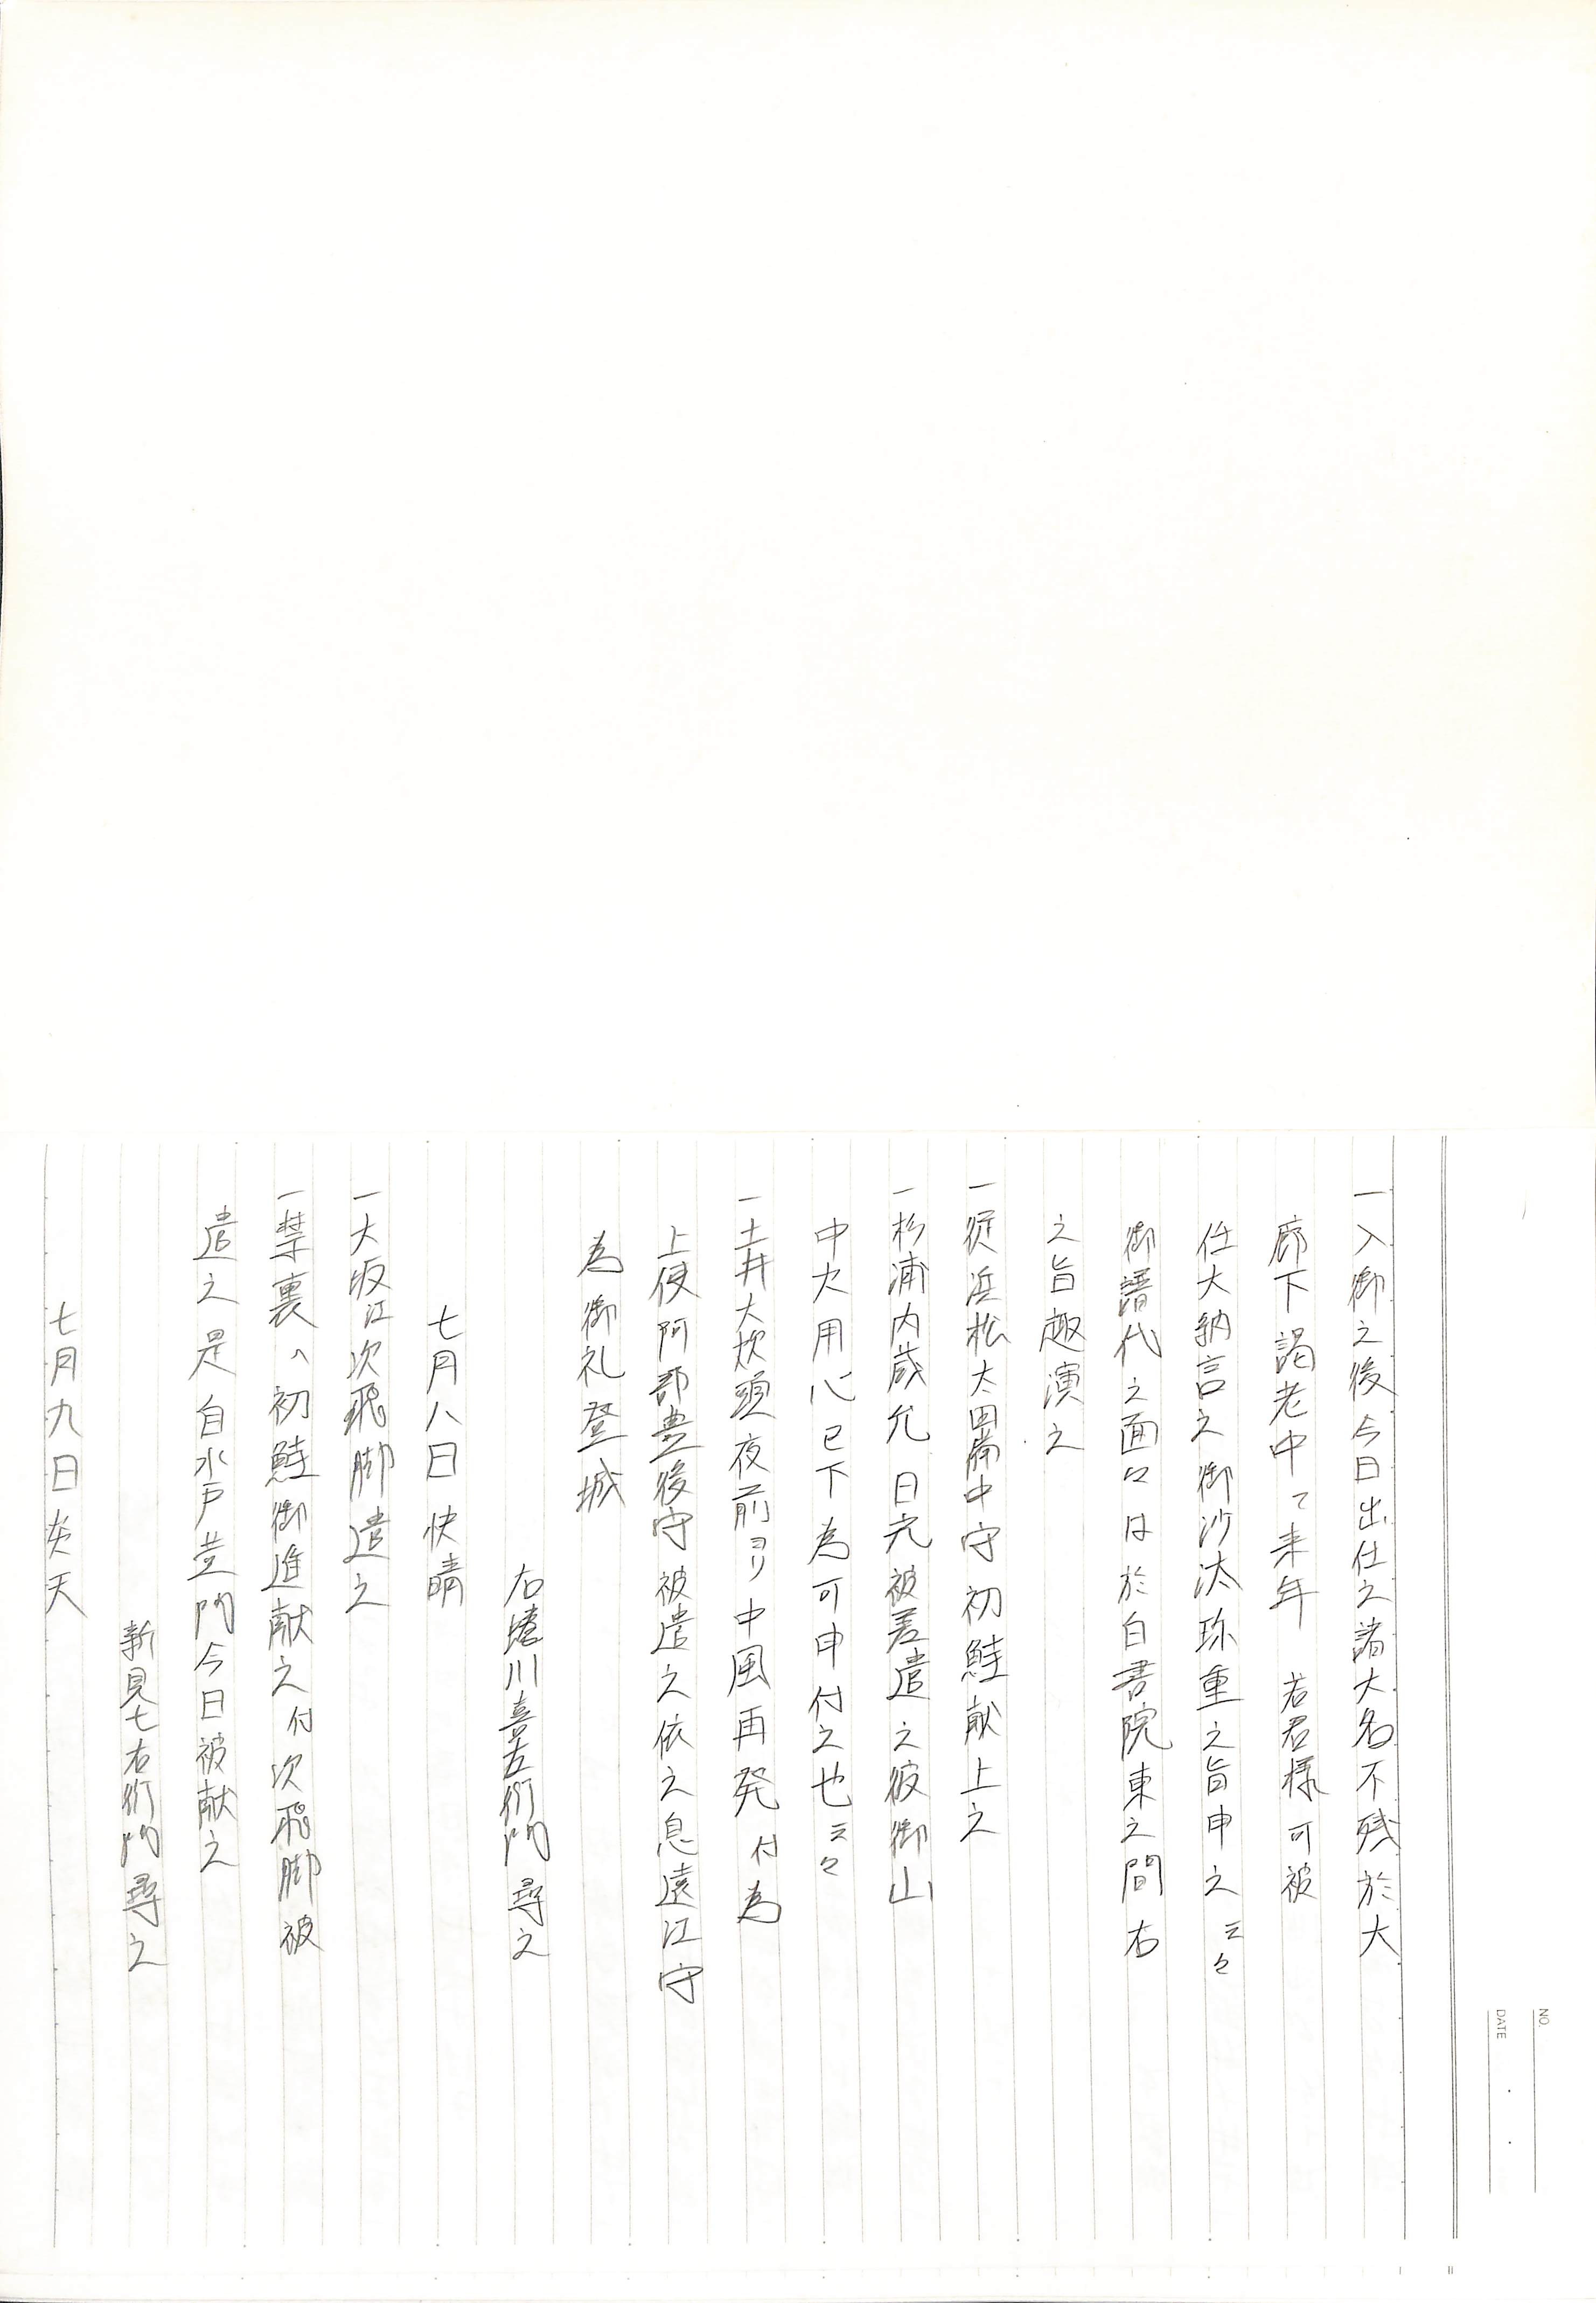 一入御之後今日出仕之諸大名不残於大
廊下謁老中て来年 若君様可被
任大納言之御沙汰珎重之旨申之云々
御譜代之面々は於白書院東之間右
之旨趣演之
一従浜松太田備中守初鮭献上之
一杉浦内蔵允日光被差遣之彼御山
中火用心已下為可申付之也云々
一土井大炊頭夜前ヨリ中風再発付為
上使阿部豊後守被遣之依之息遠江守
為御礼登城
右蜷川喜左衛門尋之
七月八日快晴
一大坂江次飛脚遣之
一禁裏へ初鮭御進献之付次飛脚被
遣之是自水戸黄門今日被献之
新見七右衛門尋之
七月九日炎天
NO.
DATE